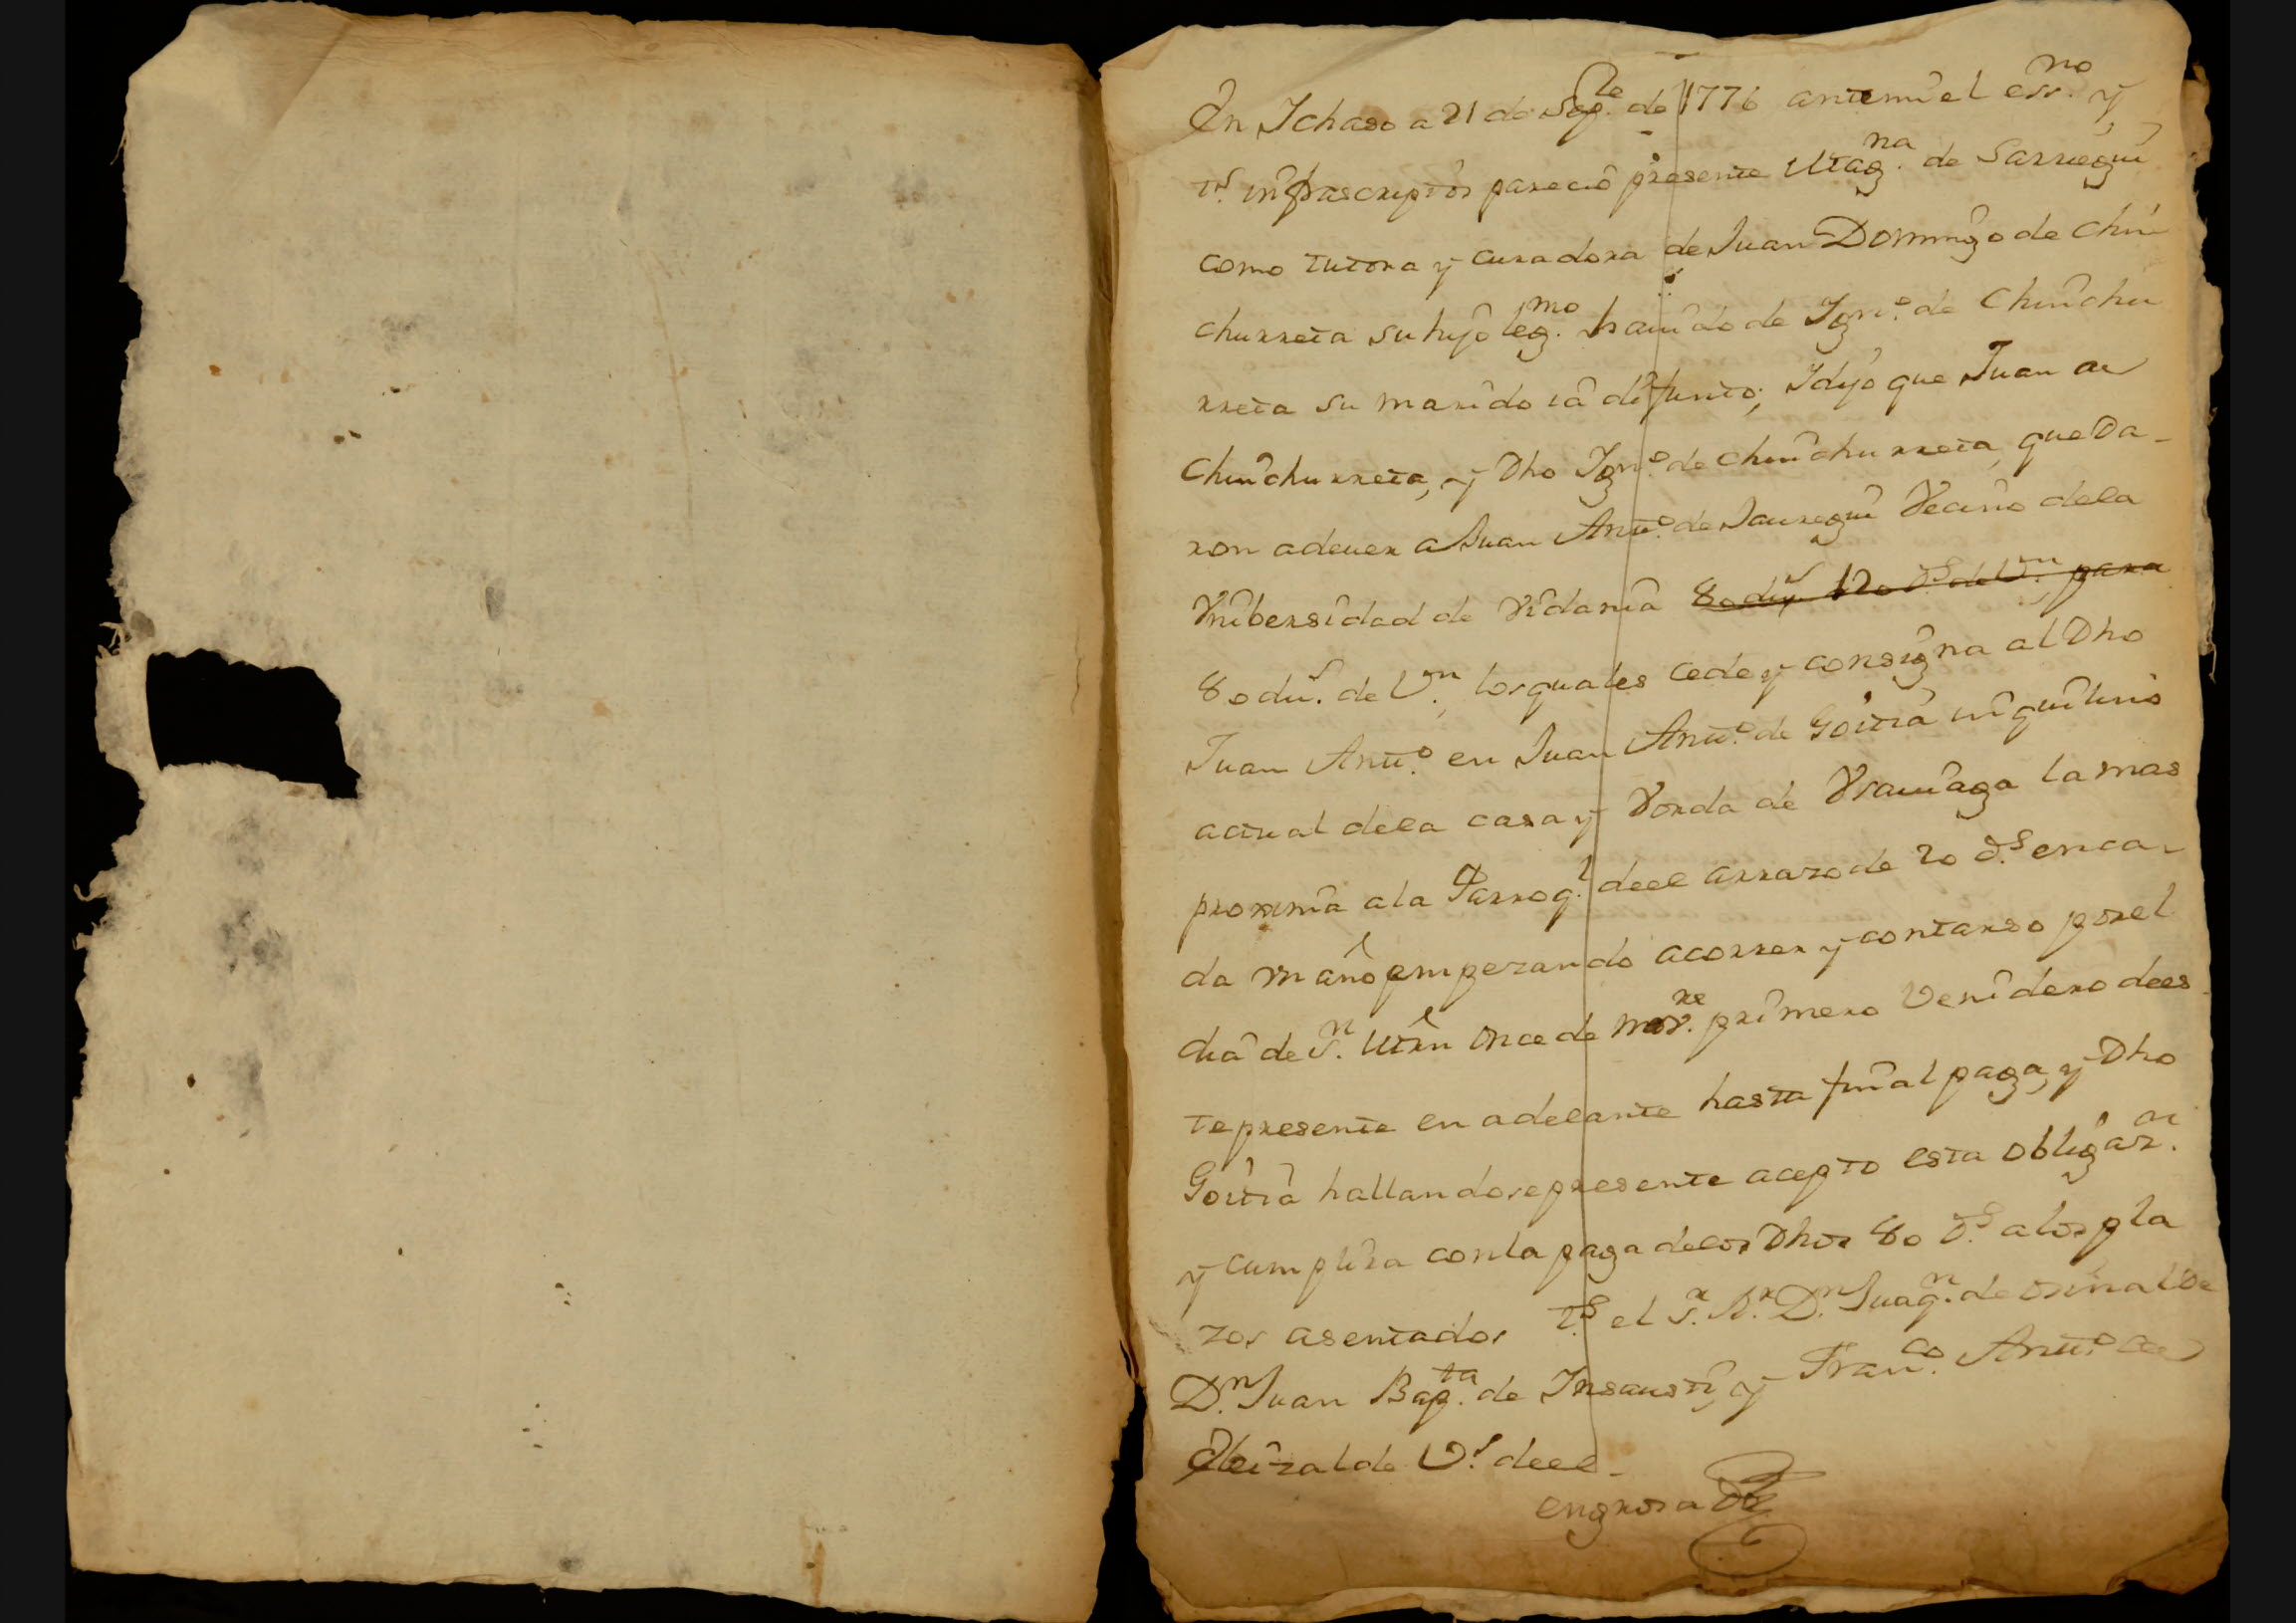 En Ichaso a 21 de Sep.re de 1776 antemi el ess.no y
ts. infrascriptos parecio presente Mag.na de Sarriegui
como tutora y curadora de Juan Domingo de Chin
churreta su hijo leg.mo havido de Ign.o de Chinchu
rreta su marido ia difunto; I dijo que Juan de
Chinchurreta, y Dho Ign.o de Chinchurreta, queda-
ron adever a Juan Antt.o de Jauregui Vecino dela
Vnibersidad de Vidania 80 du.s 120 d.s de V.n, para
80 du.s de V.n, los quales cede y consigna al Dho
Juan Antt.o en Juan Antt.o de Goitia inquilino
actual dela casa y Borda de Vsamaga la mas
proxima ala Parroq.l deel arrazo de 20 d.s en ca-
da vn año empezando a correr y contarse por el
dia de S.n Mrn once de nov.re primero Venidero dees
te presente en adelante hasta final paga, y Dho
Goitia hallandose presente acepto esta obligaz.on
y cumplira con la paga delos Dhos 80 d.s alos pla
zos asentados ts. el S.r R.r D.n Juaq.n de
D.n Juan Bap.ta de Insausti, y Fran.co Antt.o de
Elizalde V.s deel-
engrosado